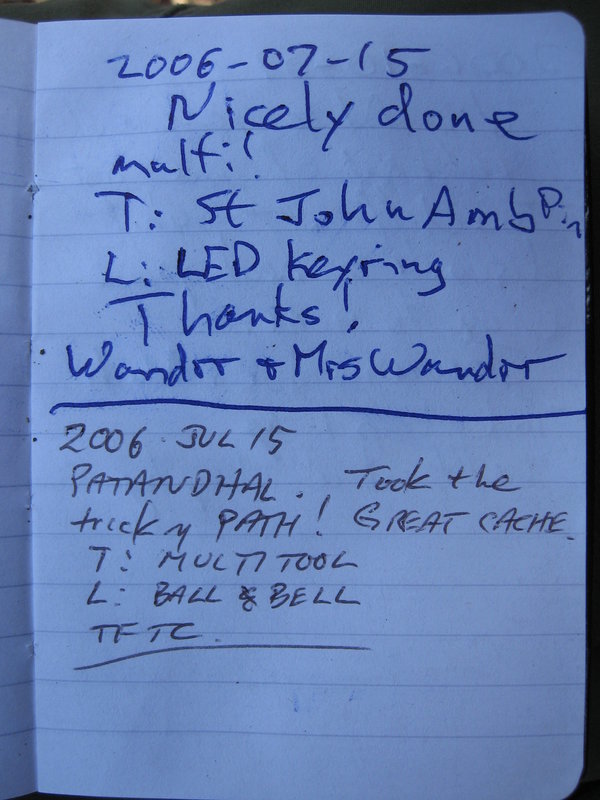 2006-07-15
Nicely done
multi!
T: St John Amb Pin
L: LED keyring
Thanks!
Wandrr + Mrs Wandrr
2006 JUL 15
PATANDHAL. Took the
tricky PATH! GREAT CACHE.
T: MULTITOOL
L: BALL & BELL
TFTC.